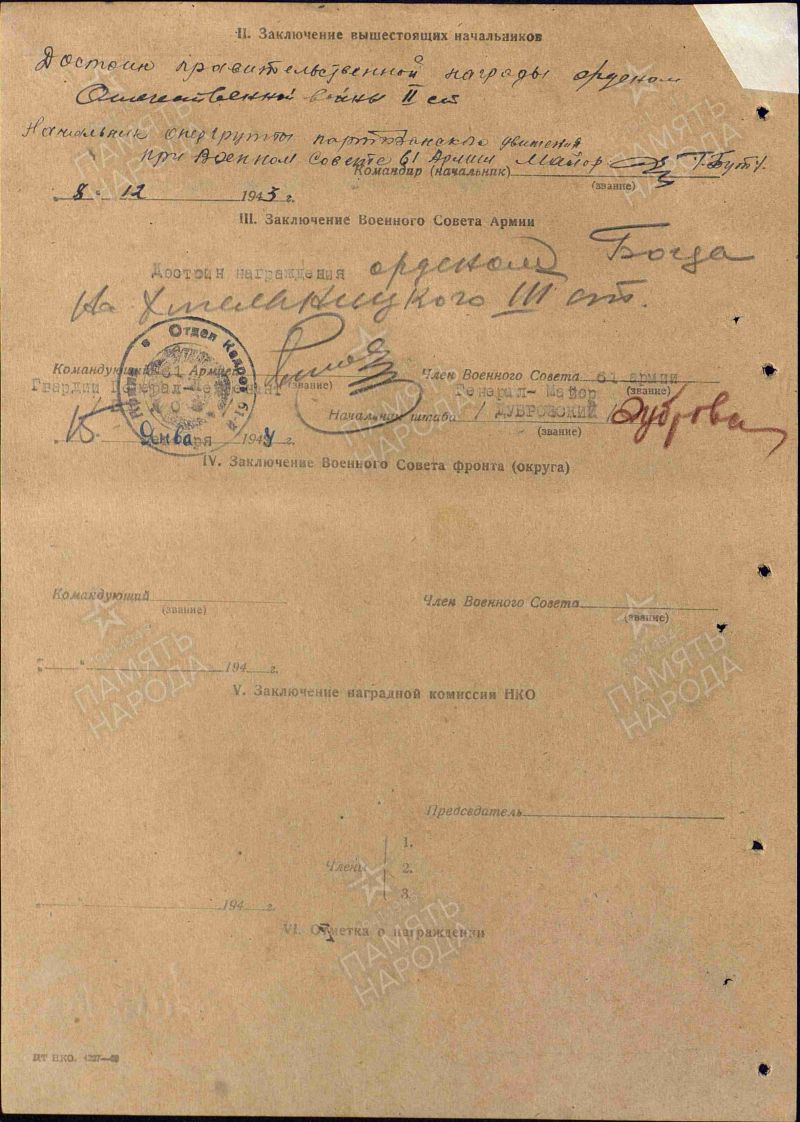 II. Заключение вышестоящих начальников
Достоин правительственной награды орденом
Отечественной войны II ст
Начальник опергруппы партизанского движения
при Военном Совете 61 Армии Майор
Командир (начальник)
(звание)
8 12 1943 г.
III. Заключение Военного Совета Армии
Достоин награждения орденом Богда
на Хмельницкого III ст.
Отдел Кадров
Командующий 61 Армией
(звание)
Член Военного Совета 61 армии
Гвардии Генерал-Лейтенант
Генерал-Майор
(звание)
Начальник штаба / ДУБРОВСКИЙ /
(звание)
15 Января 1944 г.
IV. Заключение Военного Совета фронта (округа)
Командующий
(звание)
Член Военного Совета
(звание)
" " 194 г.
V. Заключение наградной комиссии НКО
Председатель
Члены
1.
2.
3.
194 г.
VI. Отметка о награждении
ПАМЯТЬ НАРОДА
ПАМЯТЬ НАРОДА
ПАМЯТЬ НАРОДА
ПАМЯТЬ НАРОДА
ПАМЯТЬ НАРОДА
ПАМЯТЬ НАРОДА